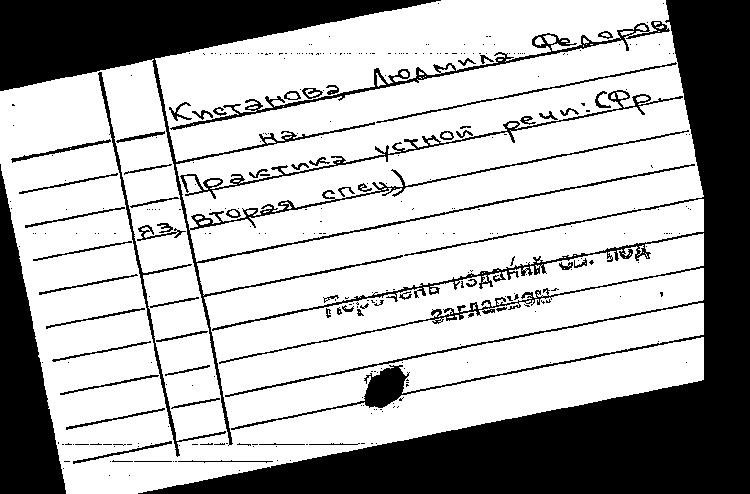 Кистанова, Людмила Федоров-
на.
Практика устной речи: (Фр.
яз, вторая спец)
Перечень изданий см. под
заглавием